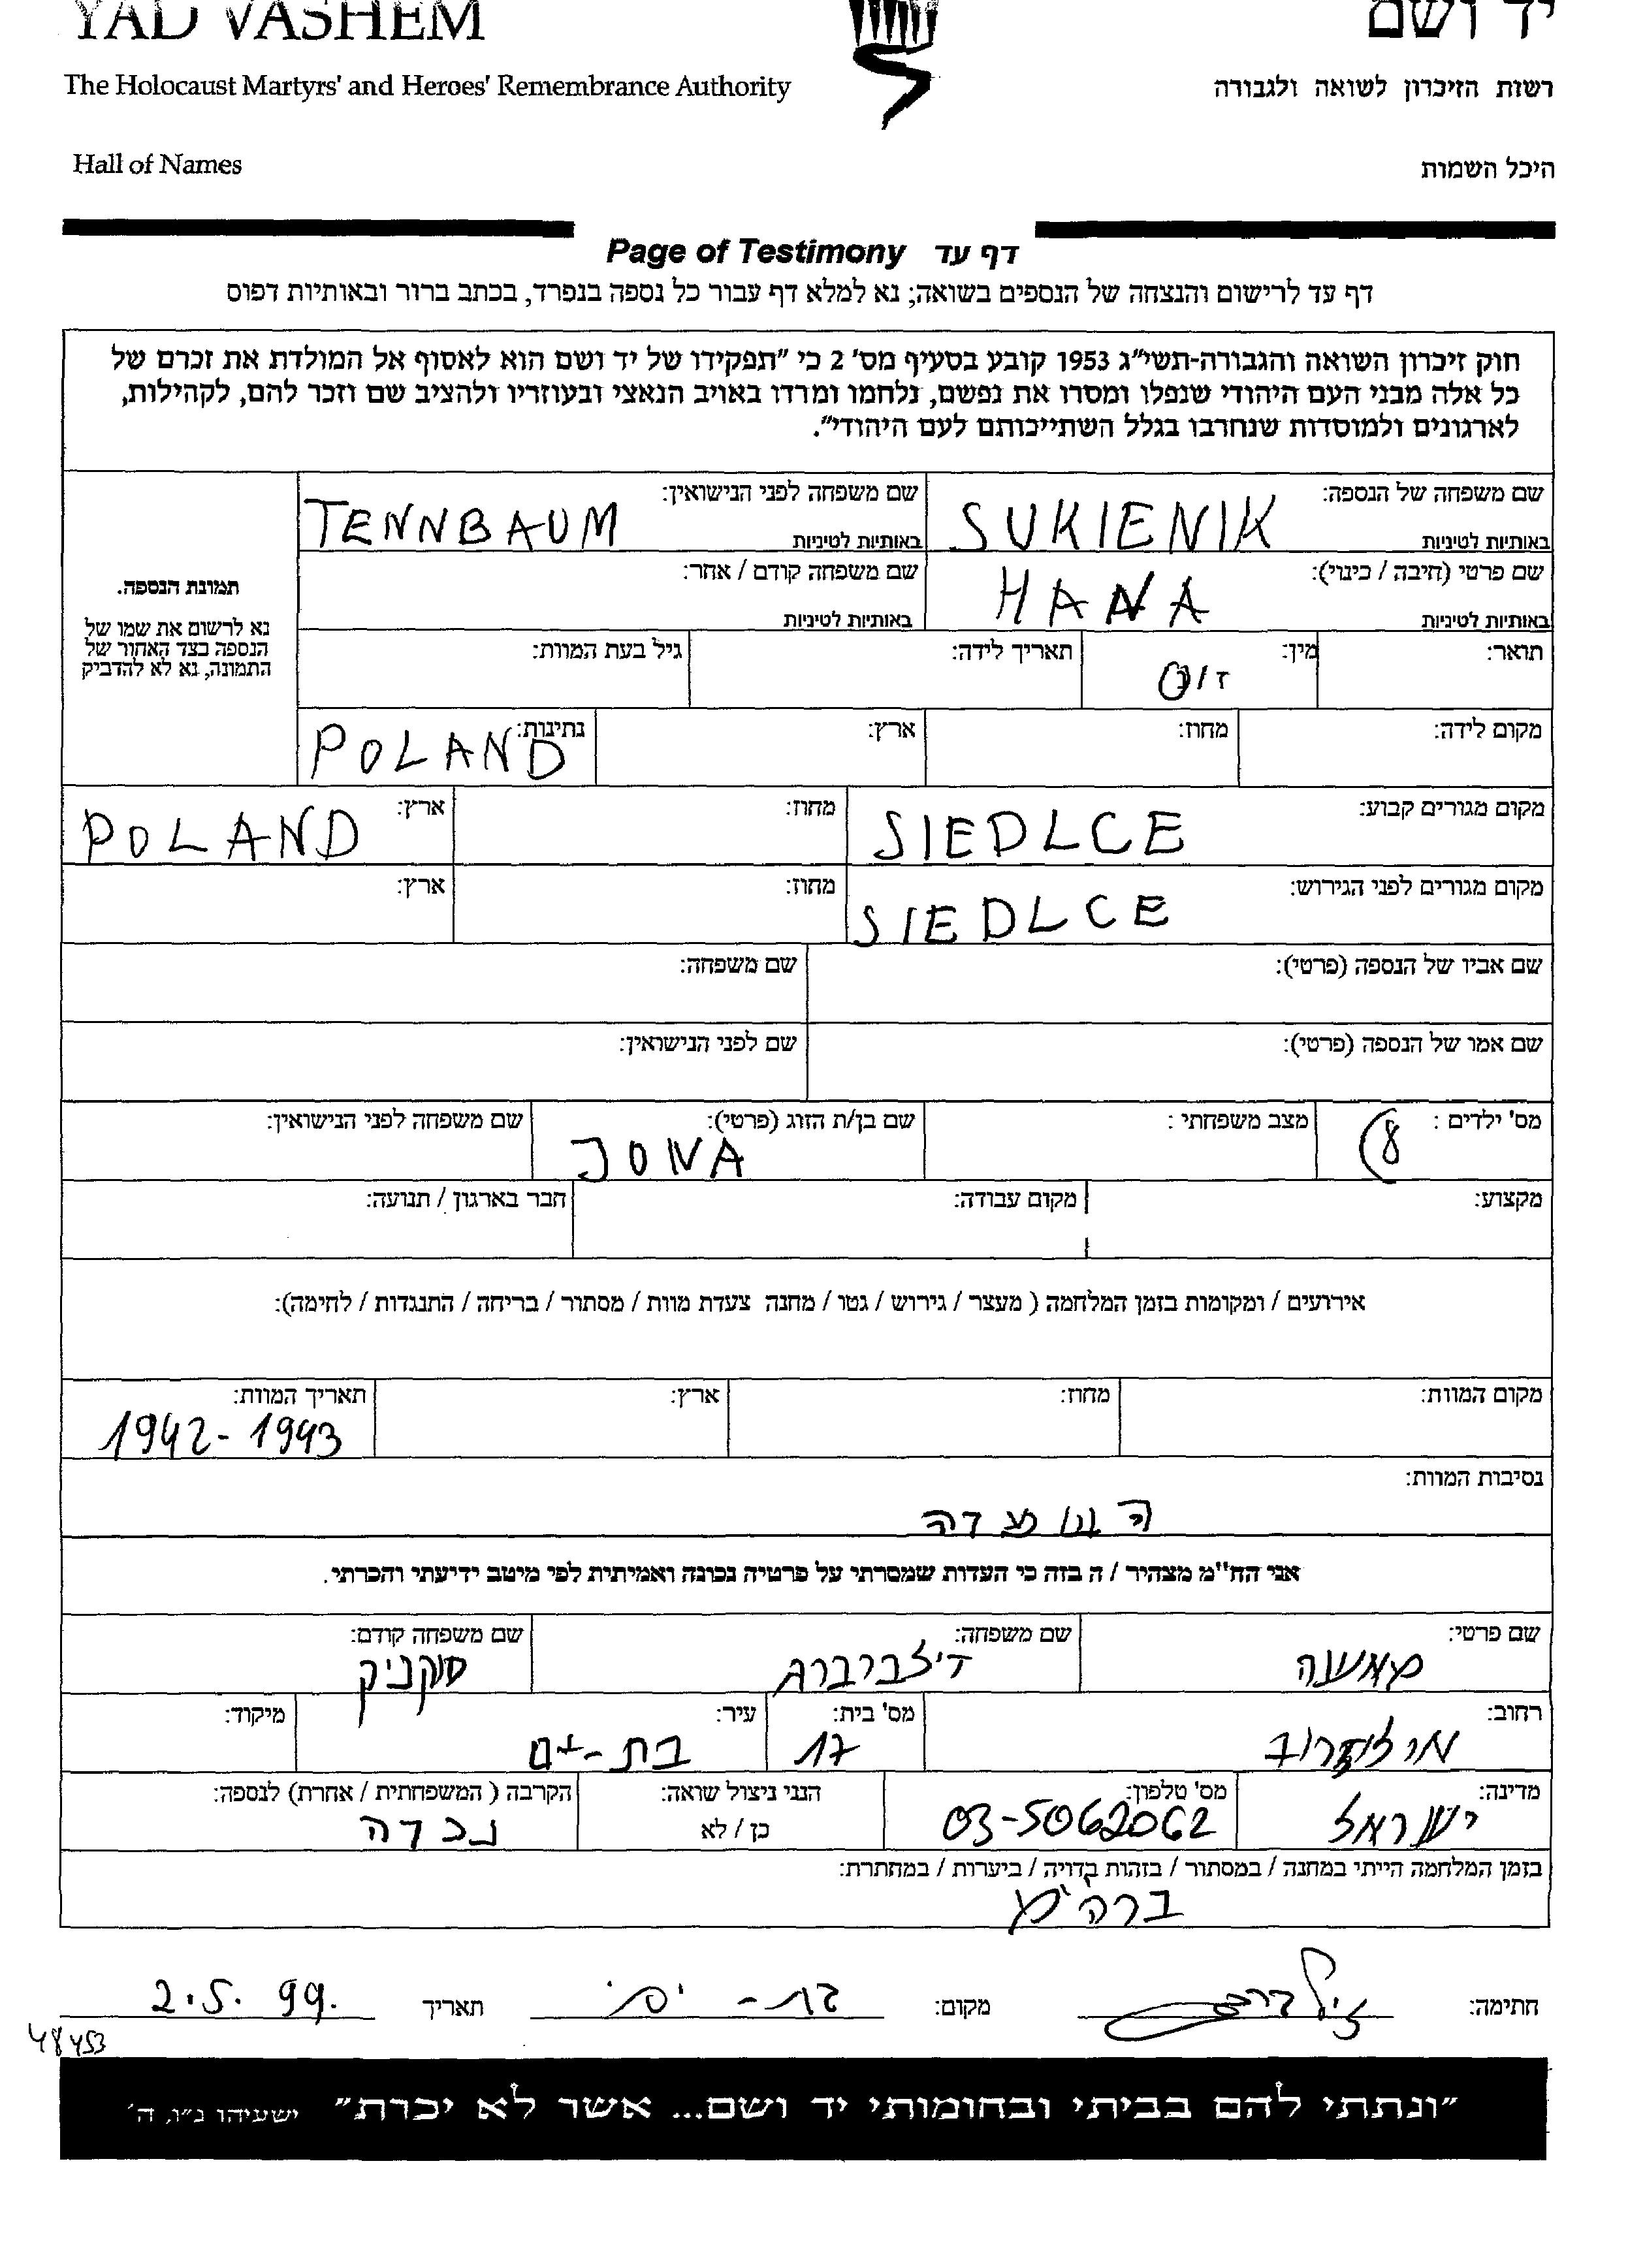 YAD VASHEM יד ושם
The Holocaust Martyrs' and Heroes' Remembrance Authority רשות הזיכרון לשואה ולגבורה
Hall of Names היכל השמות
Page of Testimony דף עד
דף עד לרישום והנצחה של הנספים בשואה; נא למלא דף עבור כל נספה בנפרד, בכתב ברור ובאותיות דפוס
חוק זיכרון השואה והגבורה-תשי"ג 1953 קובע בסעיף מס' 2 כי "תפקידו של יד ושם הוא לאסוף אל המולדת את זכרם של
כל אלה מבני העם היהודי שנפלו ומסרו את נפשם, נלחמו ומרדו באויב הנאצי ובעוזריו ולהציב שם וזכר להם, לקהילות,
לארגונים ולמוסדות שנחרבו בגלל השתייכותם לעם היהודי".
שם משפחה של הנספה: שם משפחה לפני הנישואין:
באותיות לטיניות SUKIENIK באותיות לטיניות TENNBAUM
תמונת הנספה.
נא לרשום את שמו של
הנספה בצד האחור של
התמונה, נא לא להדביק
שם פרטי (חיבה / כינוי): שם משפחה קודם / אחר:
באותיות לטיניות HANA באותיות לטיניות
תואר: מין: ז/נ תאריך לידה: גיל בעת המוות:
מקום לידה: מחוז: ארץ: נתינות: POLAND
מקום מגורים קבוע: SIEDLCE מחוז: ארץ: POLAND
מקום מגורים לפני הגירוש: SIEDLCE מחוז: ארץ:
שם אביו של הנספה (פרטי): שם משפחה:
שם אמו של הנספה (פרטי): שם לפני הנישואין:
מס' ילדים : 8 מצב משפחתי : שם בן/ת הזוג (פרטי): JONA שם משפחה לפני הנישואין:
מקצוע: מקום עבודה: חבר בארגון / תנועה:
אירועים / ומקומות בזמן המלחמה ( מעצר / גירוש / גטו / מחנה צעדת מוות / מסתור / בריחה / התנגדות / לחימה):
מקום המוות: מחוז: ארץ: תאריך המוות: 1942-1943
נסיבות המוות:
השמדה
אני הח"מ מצהיר / ה בזה כי העדות שמסרתי על פרטיה נכונה ואמיתית לפי מיטב ידיעתי והכרתי.
שם פרטי: שם משפחה: שם משפחה קודם:
סוקניק
רחוב: מס' בית: 17 עיר: בת-ים מיקוד:
מדינה: ישראל מס' טלפון: 03-5062062 הנני ניצול שואה: כן / לא הקרבה ( המשפחתית / אחרת) לנספה: נכדה
בזמן המלחמה הייתי במחנה / במסתור / בזהות בדויה / ביערות / במחתרת:
ברה"מ
חתימה: מקום: בת-ים תאריך 2.5.99.
48453
"ונתתי להם בביתי ובחומותי יד ושם... אשר לא יכרת" ישעיהו נ"ו, ה'